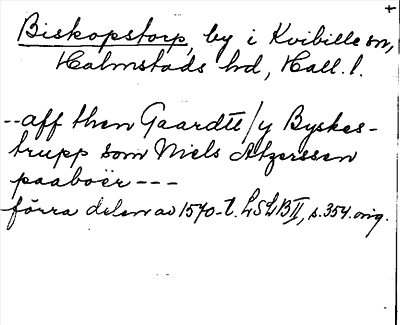 +
Biskopstorp, by i Kvibille sn,
Halmstads hd, Hall. l.
-- aff then Gaardtt / y Byskes-
trupp som Niels Atzerssen
paaboër ---
förra delen av 1570-t. LSLB II, s. 354. orig.